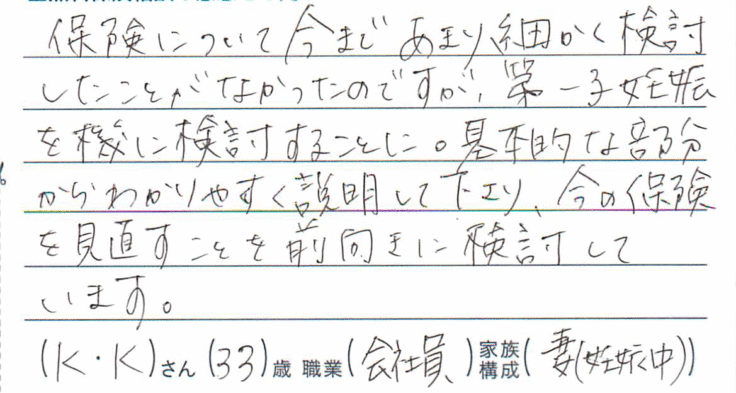 保険について今まであまり細かく検討
したことがなかったのですが、第一子妊娠
を機に検討することに。基本的な部分
からわかりやすく説明して下さり、今の保険
を見直すことを前向きに検討して
います。
(K・K)さん(33)歳 職業(会社員)家族構成(妻(妊娠中))